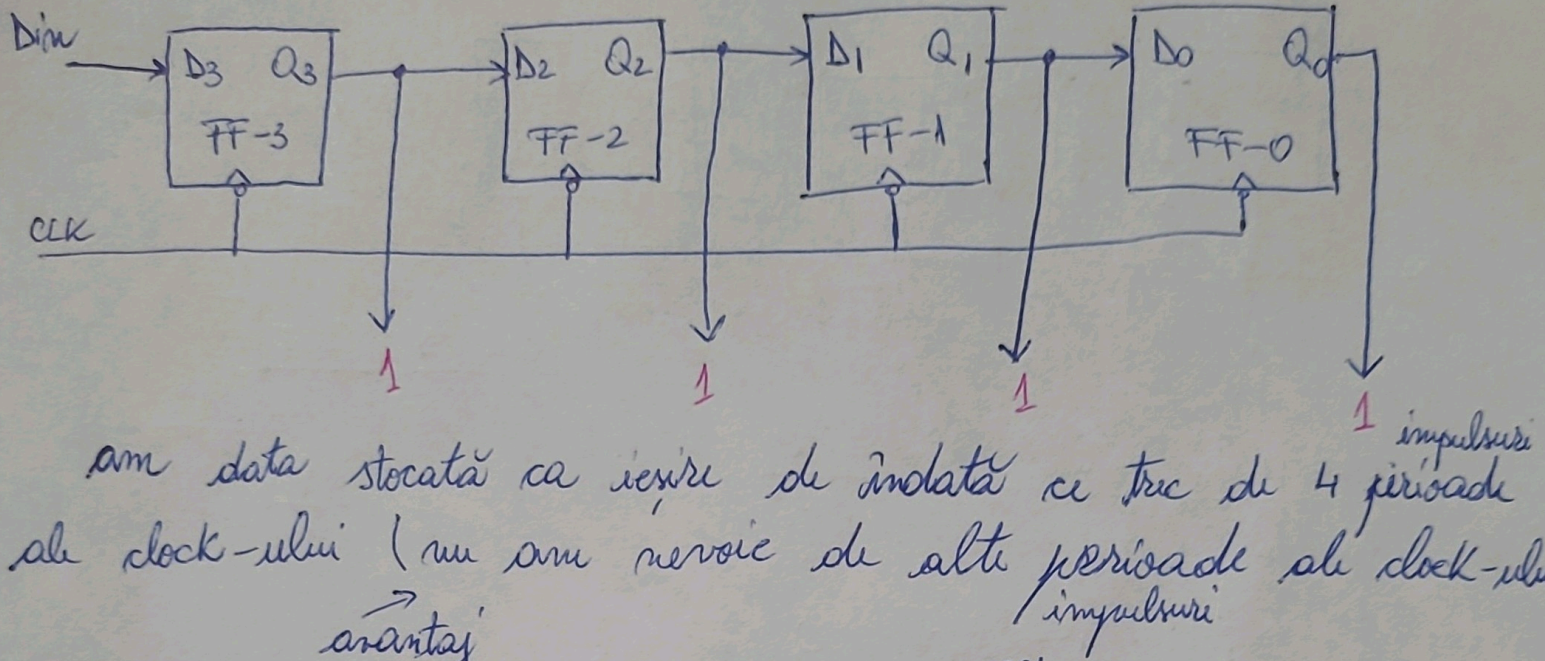 Din
D3 Q3 D2 Q2 D1 Q1 D0 Q0
FF-3 FF-2 FF-1 FF-0
CLK
1 1 1 1
impulsuri
am data stocată ca ieșire de îndată ce trec de 4 perioade
ale clock-ului (nu am nevoie de alte perioade ale clock-ului
impulsuri
avantaj